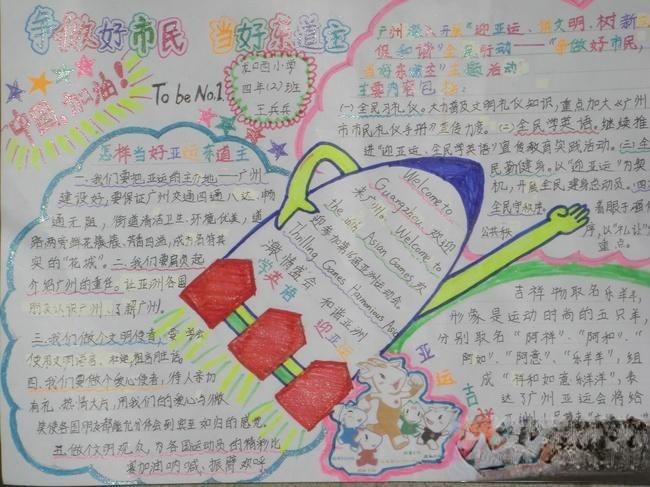 争做好市民 当好东道主
中国,加油!
To be No.1
龙口西小学
四年(2)班
王兵兵
怎样当好亚运东道主
一.我们要把亚运的主办地——广州
建设好,要保证广州交通四通八达,畅
通无阻,街道清洁卫生,环境优美,道
路两旁鲜花簇簇、
实的"花城"。二.我们要肩负起
介绍广州的责任。让亚洲各国
朋友认识广州、了解广州。
三.我们做个文明使者,要
使用文明语言,
四.我们要做个爱心使者,待人亲切
有礼,热情大方,用我们的爱心与微
笑使各国朋友都能体会到宾至如归的感觉。
五.做个文明观众,为各国运动员的精彩比
赛加油呐喊、振臂欢呼
Welcome to
Guangzhou 欢迎
来广州 Welcome to
the 16th Asian Games 欢
迎参加第16届亚洲运动会
Thrilling Games Harmonious Asia
激情盛会 和谐亚洲
学英语
迎亚运
广州深入开展"迎亚运、讲文明、树新
促和谐"全民行动——"争做好市民,
当好东道主"主题活动
主要内容包括:
(一)全民习礼仪。大力普及文明礼仪知识,重点加大《广州
市市民礼仪手册》宣传力度。(二)全民学英语。继续推
进"迎亚运、全民学英语"宣传教育实践活动。(三)全
民勤健身。以"迎亚运"为契
机,开展全民健身总动员。四
全民守秩序。着眼于强化
公共秩序,以"礼让
重点。
吉祥物取名乐羊羊,
形象是运动时尚的五只羊,
分别取名"阿祥"、"阿和"、"
阿如"、"阿意"、"乐羊羊",组
成"祥和如意乐洋洋",表
达了广州亚运会将给
亚运吉祥